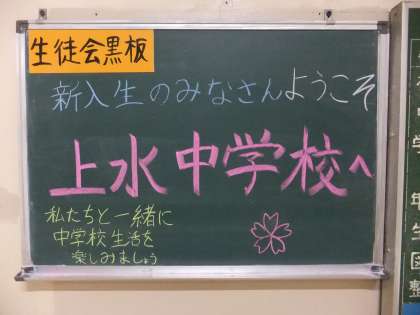 生徒会黒板
新入生のみなさんようこそ
上水中学校へ
私たちと一緒に
中学校生活を
楽しみましょう